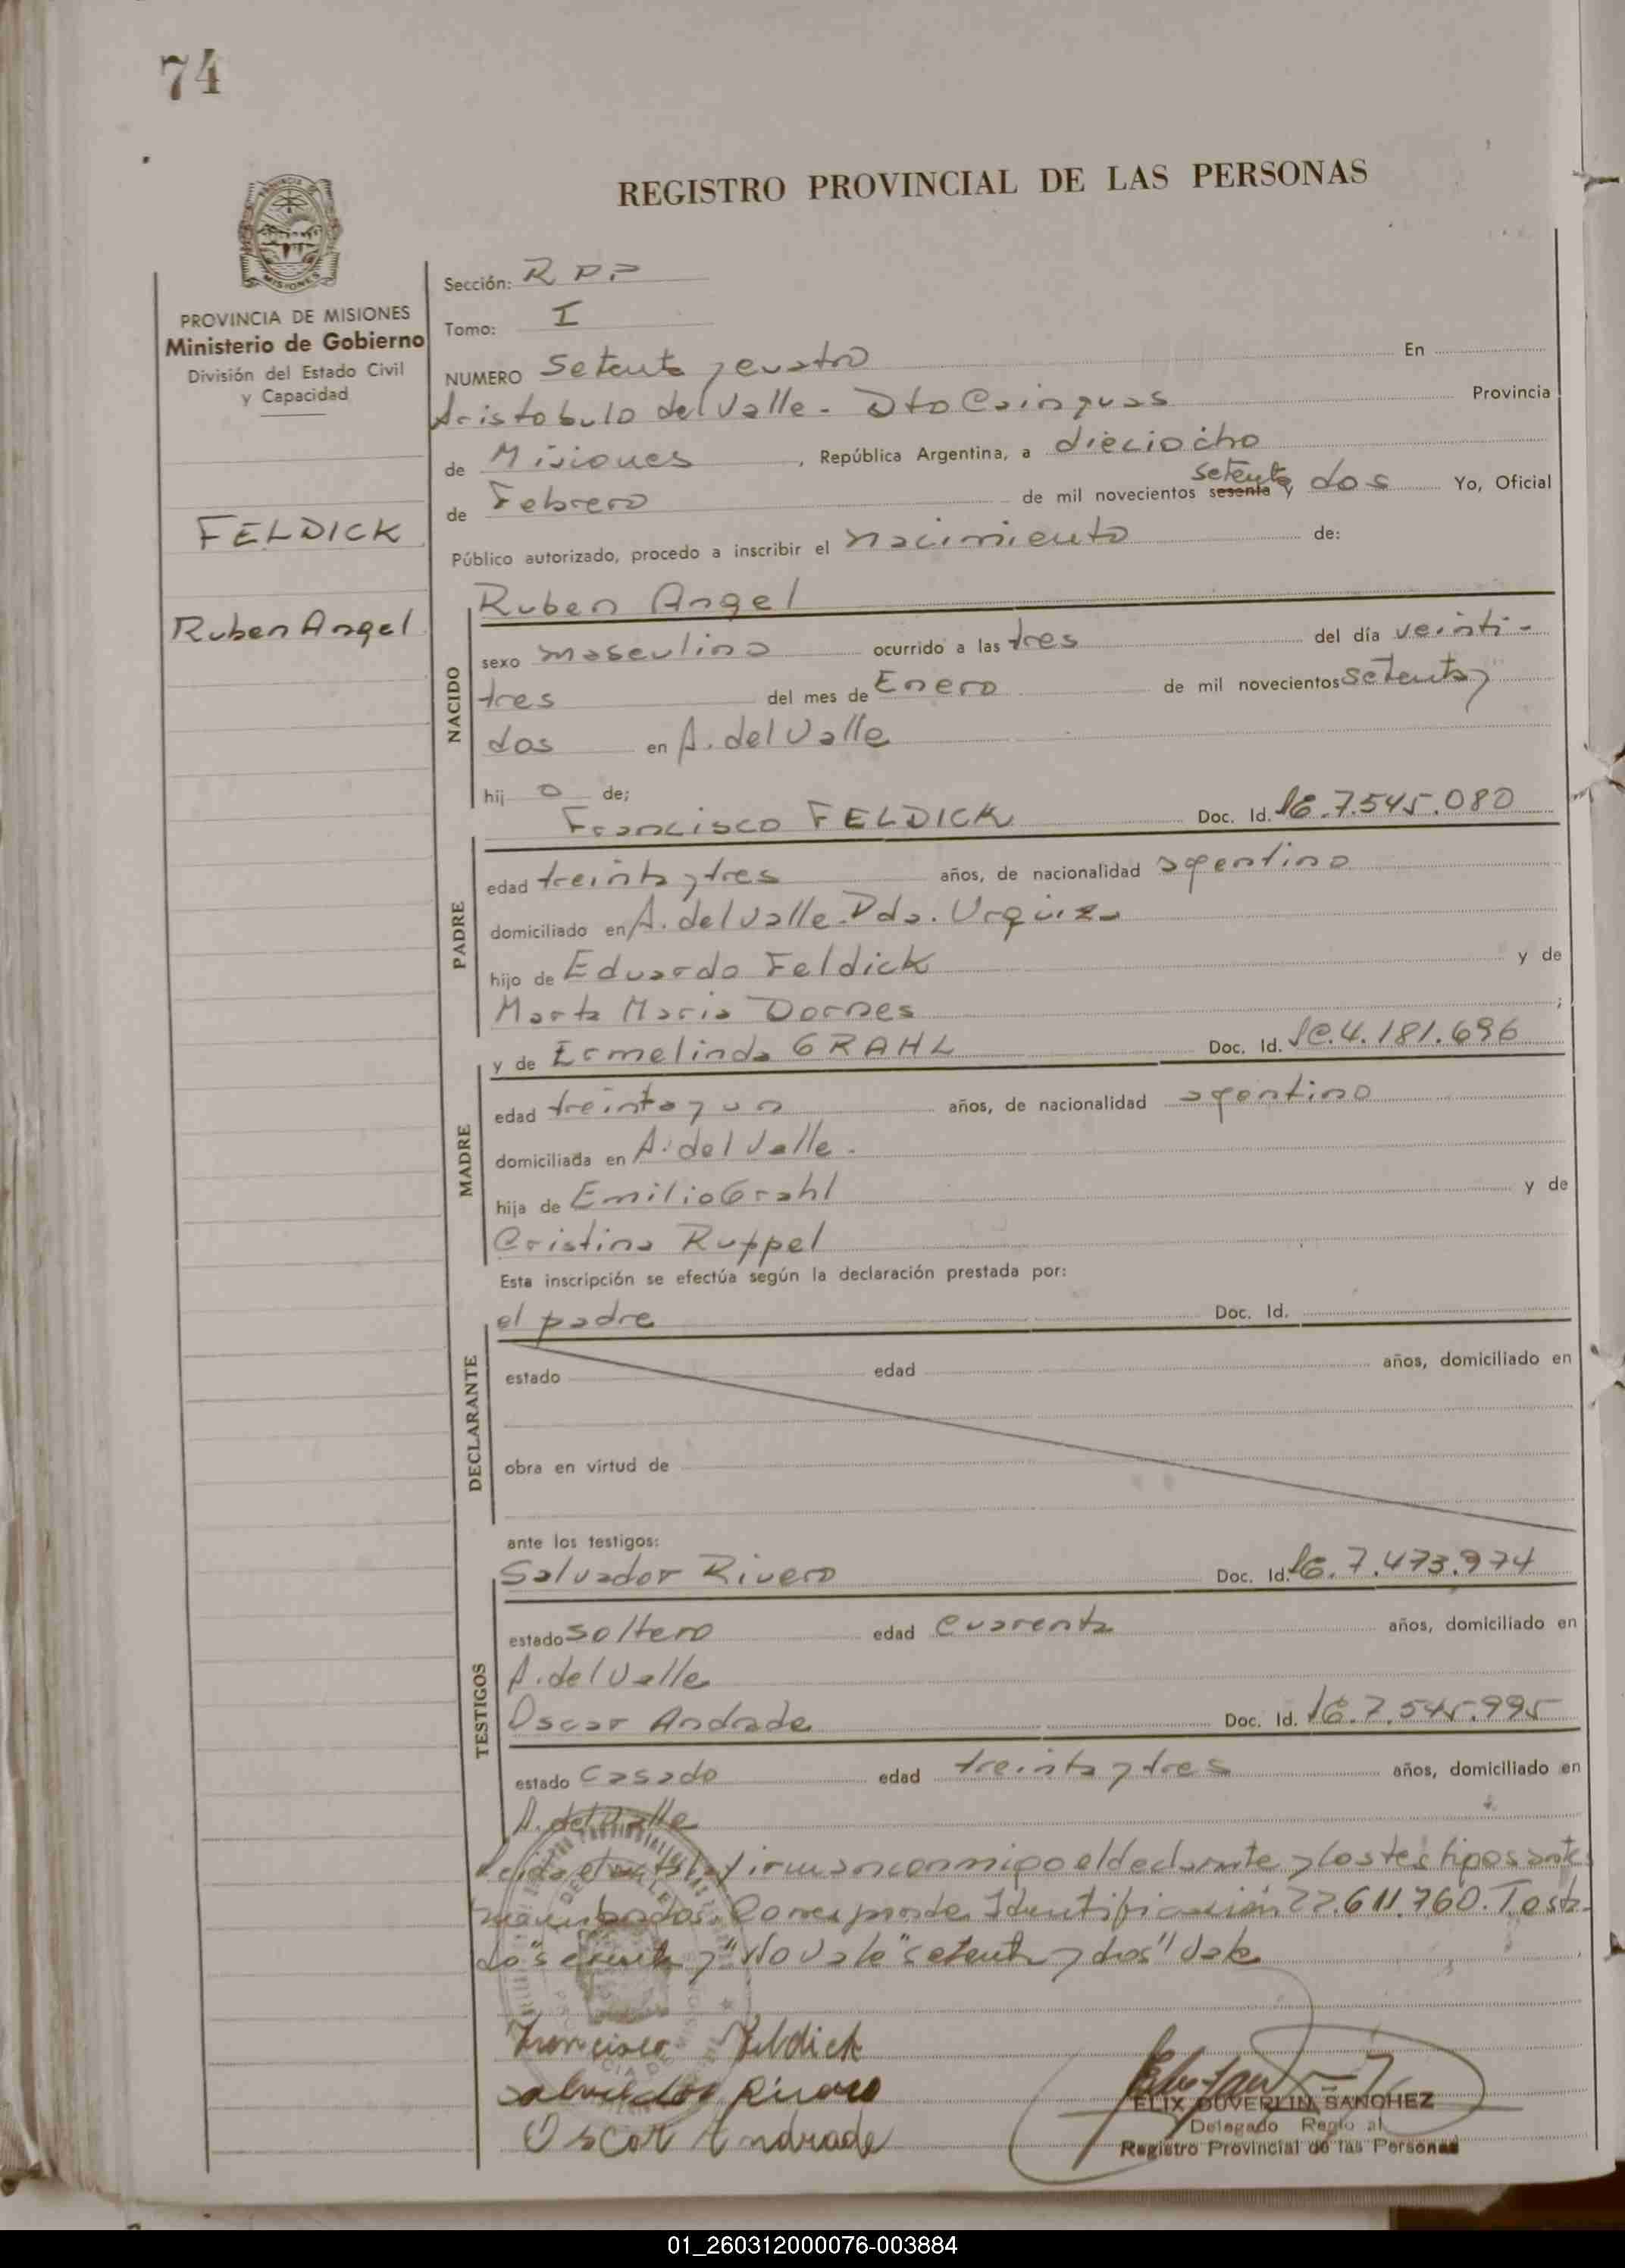 74
REGISTRO PROVINCIAL DE LAS PERSONAS
MISIONES
PROVINCIA DE MISIONES
Ministerio de Gobierno
División del Estado Civil
y Capacidad
FELDICK
Ruben Angel
Sección: R P.P
Tomo: I
NUMERO Setenta y cuatro En
Aristobulo del Valle - Dto Cainguas Provincia
de Misiones, República Argentina, a dieciocho
setenta
de Febrero de mil novecientos sesenta y dos Yo, Oficial
Público autorizado, procedo a inscribir el nacimiento de:
NACIDO
Ruben Angel
sexo masculino ocurrido a las tres del día veinti-
tres del mes de Enero de mil novecientos setenta y
dos en A. del Valle
hijo de;
PADRE
Francisco FELDICK Doc. Id. 7.545.080
edad treinta y tres años, de nacionalidad agentino
domiciliado en A. del Valle. Pda. Urquiza
hijo de Eduardo Feldick y de
Marta Maria Dornes;
MADRE
y de Ermelinda GRAHL Doc. Id. 4.181.696
edad treinta y un años, de nacionalidad agentino
domiciliada en A. del Valle.
hija de Emilio Grahl y de
Cristina Ruppel
Esta inscripción se efectúa según la declaración prestada por:
DECLARANTE
el padre Doc. Id.
estado edad años, domiciliado en
obra en virtud de
ante los testigos:
TESTIGOS
Salvador Rivero Doc. Id. 7.473.974
estado soltero edad cuarenta años, domiciliado en
A. del Valle
Oscar Andrade Doc. Id. 7.545.995
estado casado edad treinta y tres años, domiciliado en
A. del Valle
Leida el acta la firman conmigo el declarante y los testigos ante
mencionados. Corresponde Identificación 22.611.760. Testa-
do "sesenta y" No vale "setenta y dos" Vale
Francisco Feldick
Salvador Rivero
Oscar Andrade
ELIX DUVERLIN SANCHEZ
Delegado Regio al
Registro Provincial de las Personas
01_260312000076-003884